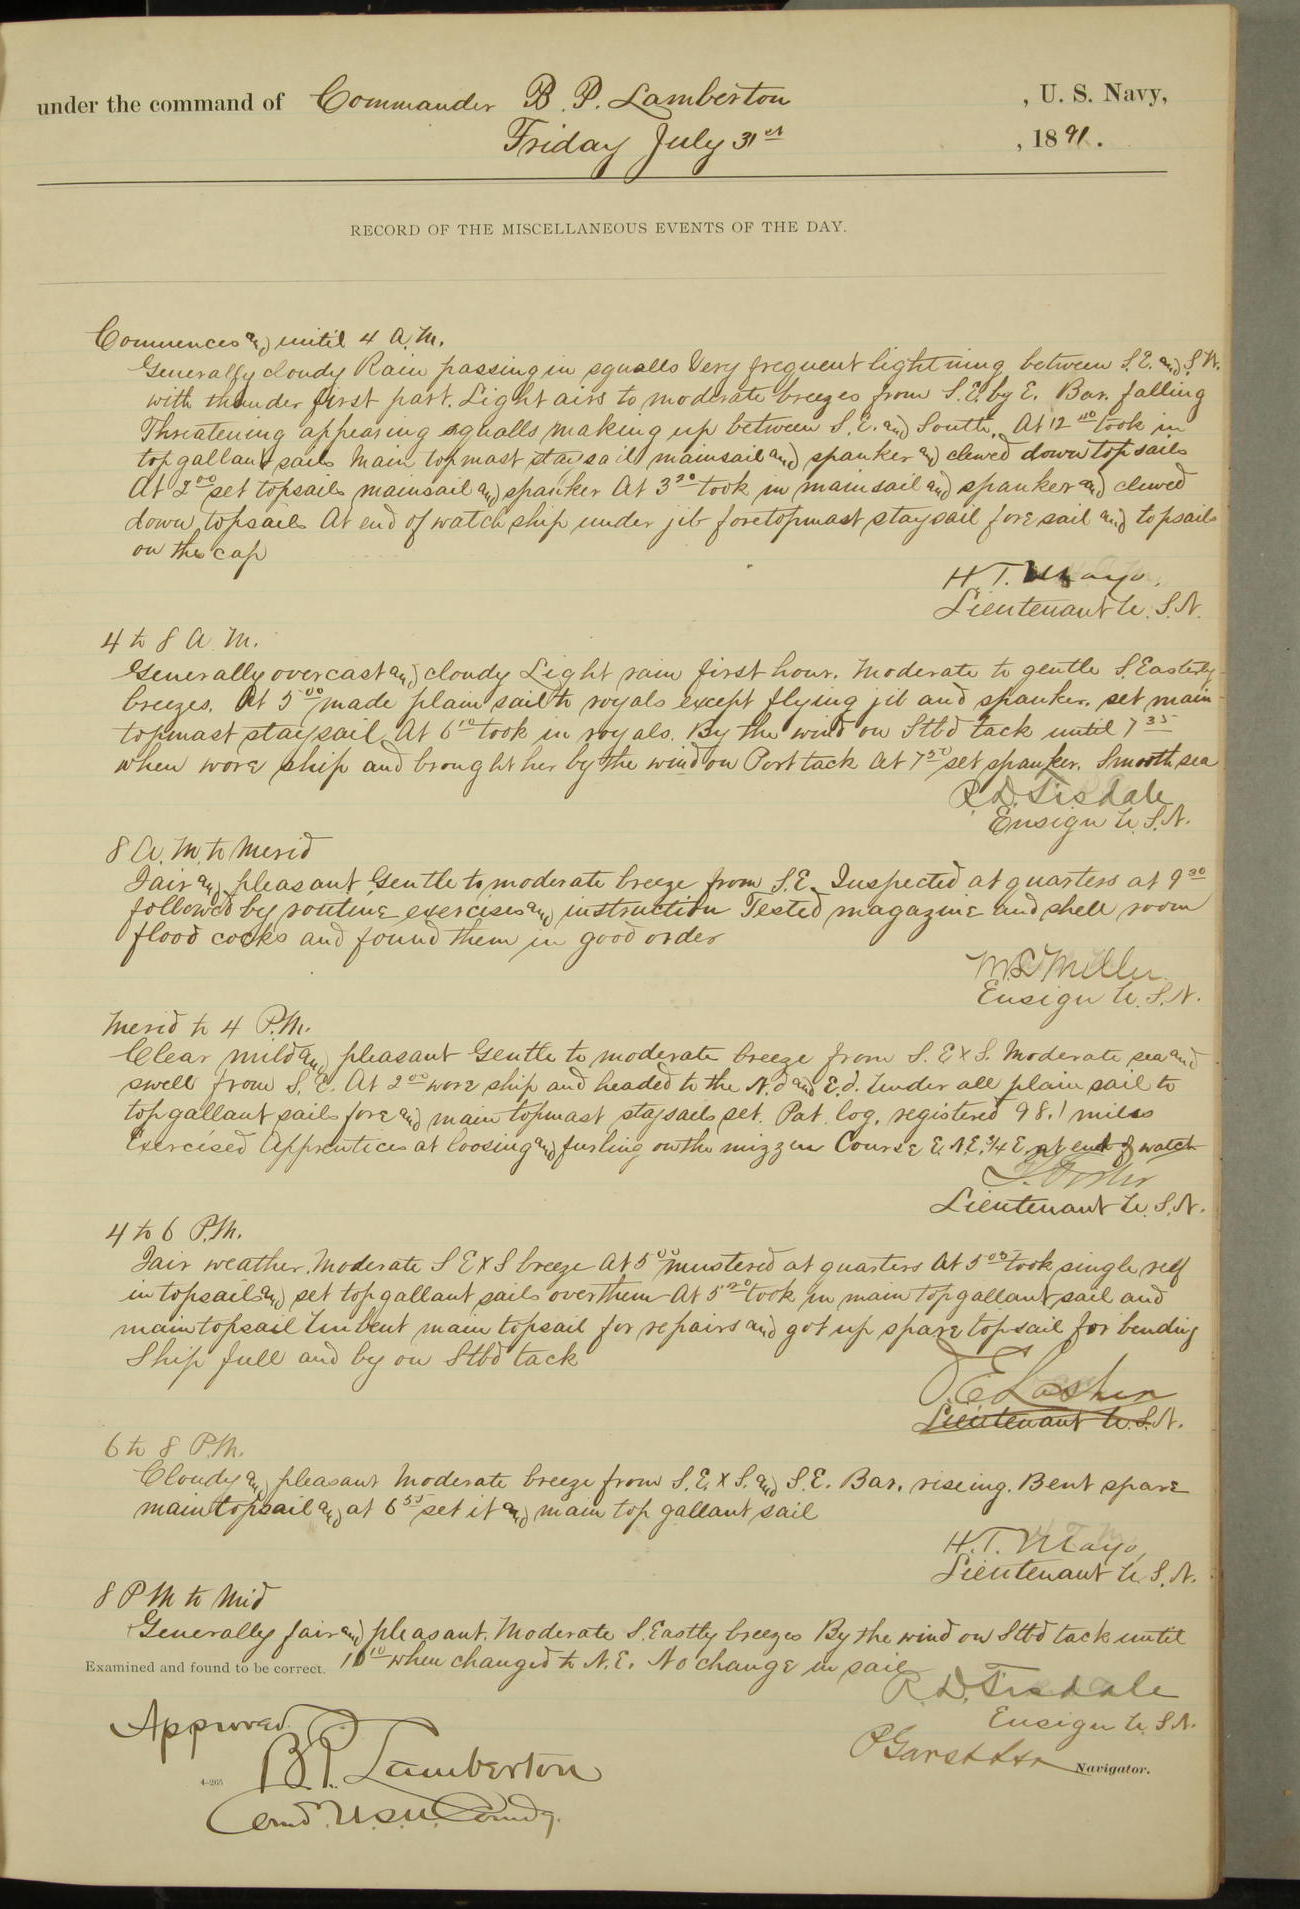 under the command of Commander B. P. Lamberton, U. S. Navy,
Friday July 31st, 1891.
RECORD OF THE MISCELLANEOUS EVENTS OF THE DAY.
Commences and until 4 A.M.
Generally cloudy Rain passing in squalls Very frequent lightning between S.E. and S.W.
with thunder first part. Light airs to moderate breezes from S.E. by E. Bar. falling
Threatening appearing squalls making up between S.E. and South. At 12 took in
topgallant sails main topmast staysail mainsail and spanker and clewed down topsails
At 2 00 set topsails mainsail and spanker At 3 20 took in mainsail and spanker and clewed
down topsails At end of watch ship under jib foretopmast staysail fore sail and topsails
on the cap
H. T. Mayo.
Lieutenant U. S. N.
4 to 8 A. M.
Generally overcast and cloudy Light rain first hour. Moderate to gentle S. Easterly
breezes. At 5 00 made plain sail to royals except flying jib and spanker. set main-
topmast staysail. At 6 10 took in royals. By the wind on Stbd tack until 7 35
when wore ship and brought her by the wind on Port tack At 7 50 set spanker. Smooth sea
R. D. Tisdale
Ensign U. S. N.
8 A. M. to Merid
Fair and pleasant Gentle to moderate breeze from S.E. Inspected at quarters at 9 30
followed by routine exercises and instruction Tested magazine and shell room
flood cocks and found them in good order
Miller
Ensign U. S. N.
Merid to 4 P.M.
Clear mild and pleasant Gentle to moderate breeze from S. E x S. Moderate sea and
swell from S. E. At 2 00 wore ship and headed to the N.d and E.d. Under all plain sail to
topgallant sails fore and main topmast staysails set. Pat. log. registered 98.1 miles
Exercised Apprentices at loosing and furling on the mizzen Course E.N.E. 3/4 E. at end of watch
Lieutenant U. S. N.
4 to 6 P.M.
Fair weather. Moderate S E x S breeze At 5 00 mustered at quarters At 5 05 took single reef
in topsails and set topgallant sails over them At 5 20 took in main topgallant sail and
main topsail Unbent main topsail for repairs and got up spare topsail for bending
Ship full and by on Stbd tack
Lieutenant U. S. N.
6 to 8 P.M.
Cloudy and pleasant Moderate breeze from S. E. x S. and S. E. Bar. rising. Bent spare
main topsail and at 6 55 set it and main top gallant sail
H. T. Mayo,
Lieutenant U. S. N.
8 P M to Mid
Generally fair and pleasant. Moderate S. Eastly breezes By the wind on Stbd tack until
10 10 when changed to N. E. No change in sail
Examined and found to be correct.
R. D. Tisdale
Ensign U. S. N.
Approved
B. P. Lamberton
Comd. U.S.N. Comdg.
P Garst
Navigator.
4-265